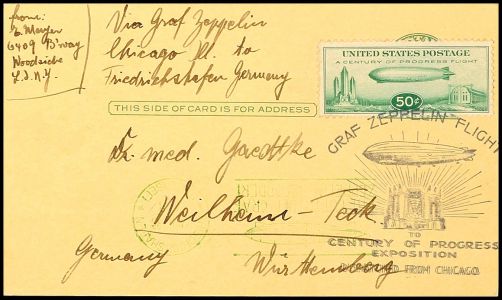 from:
E. Meyer
6409 B'way
Woodside
L.I. N.Y.
Via Graf Zeppelin
Chicago Ill. to
Friedrichshafen Germany
UNITED STATES POSTAGE
A CENTURY OF PROGRESS FLIGHT
50¢
THIS SIDE OF CARD IS FOR ADDRESS
GRAF ZEPPELIN FLIGHT
TO
CENTURY OF PROGRESS
EXPOSITION
FROM CHICAGO
Dr. med. Gaedtke
Weilheim - Teck
Germany Württemberg